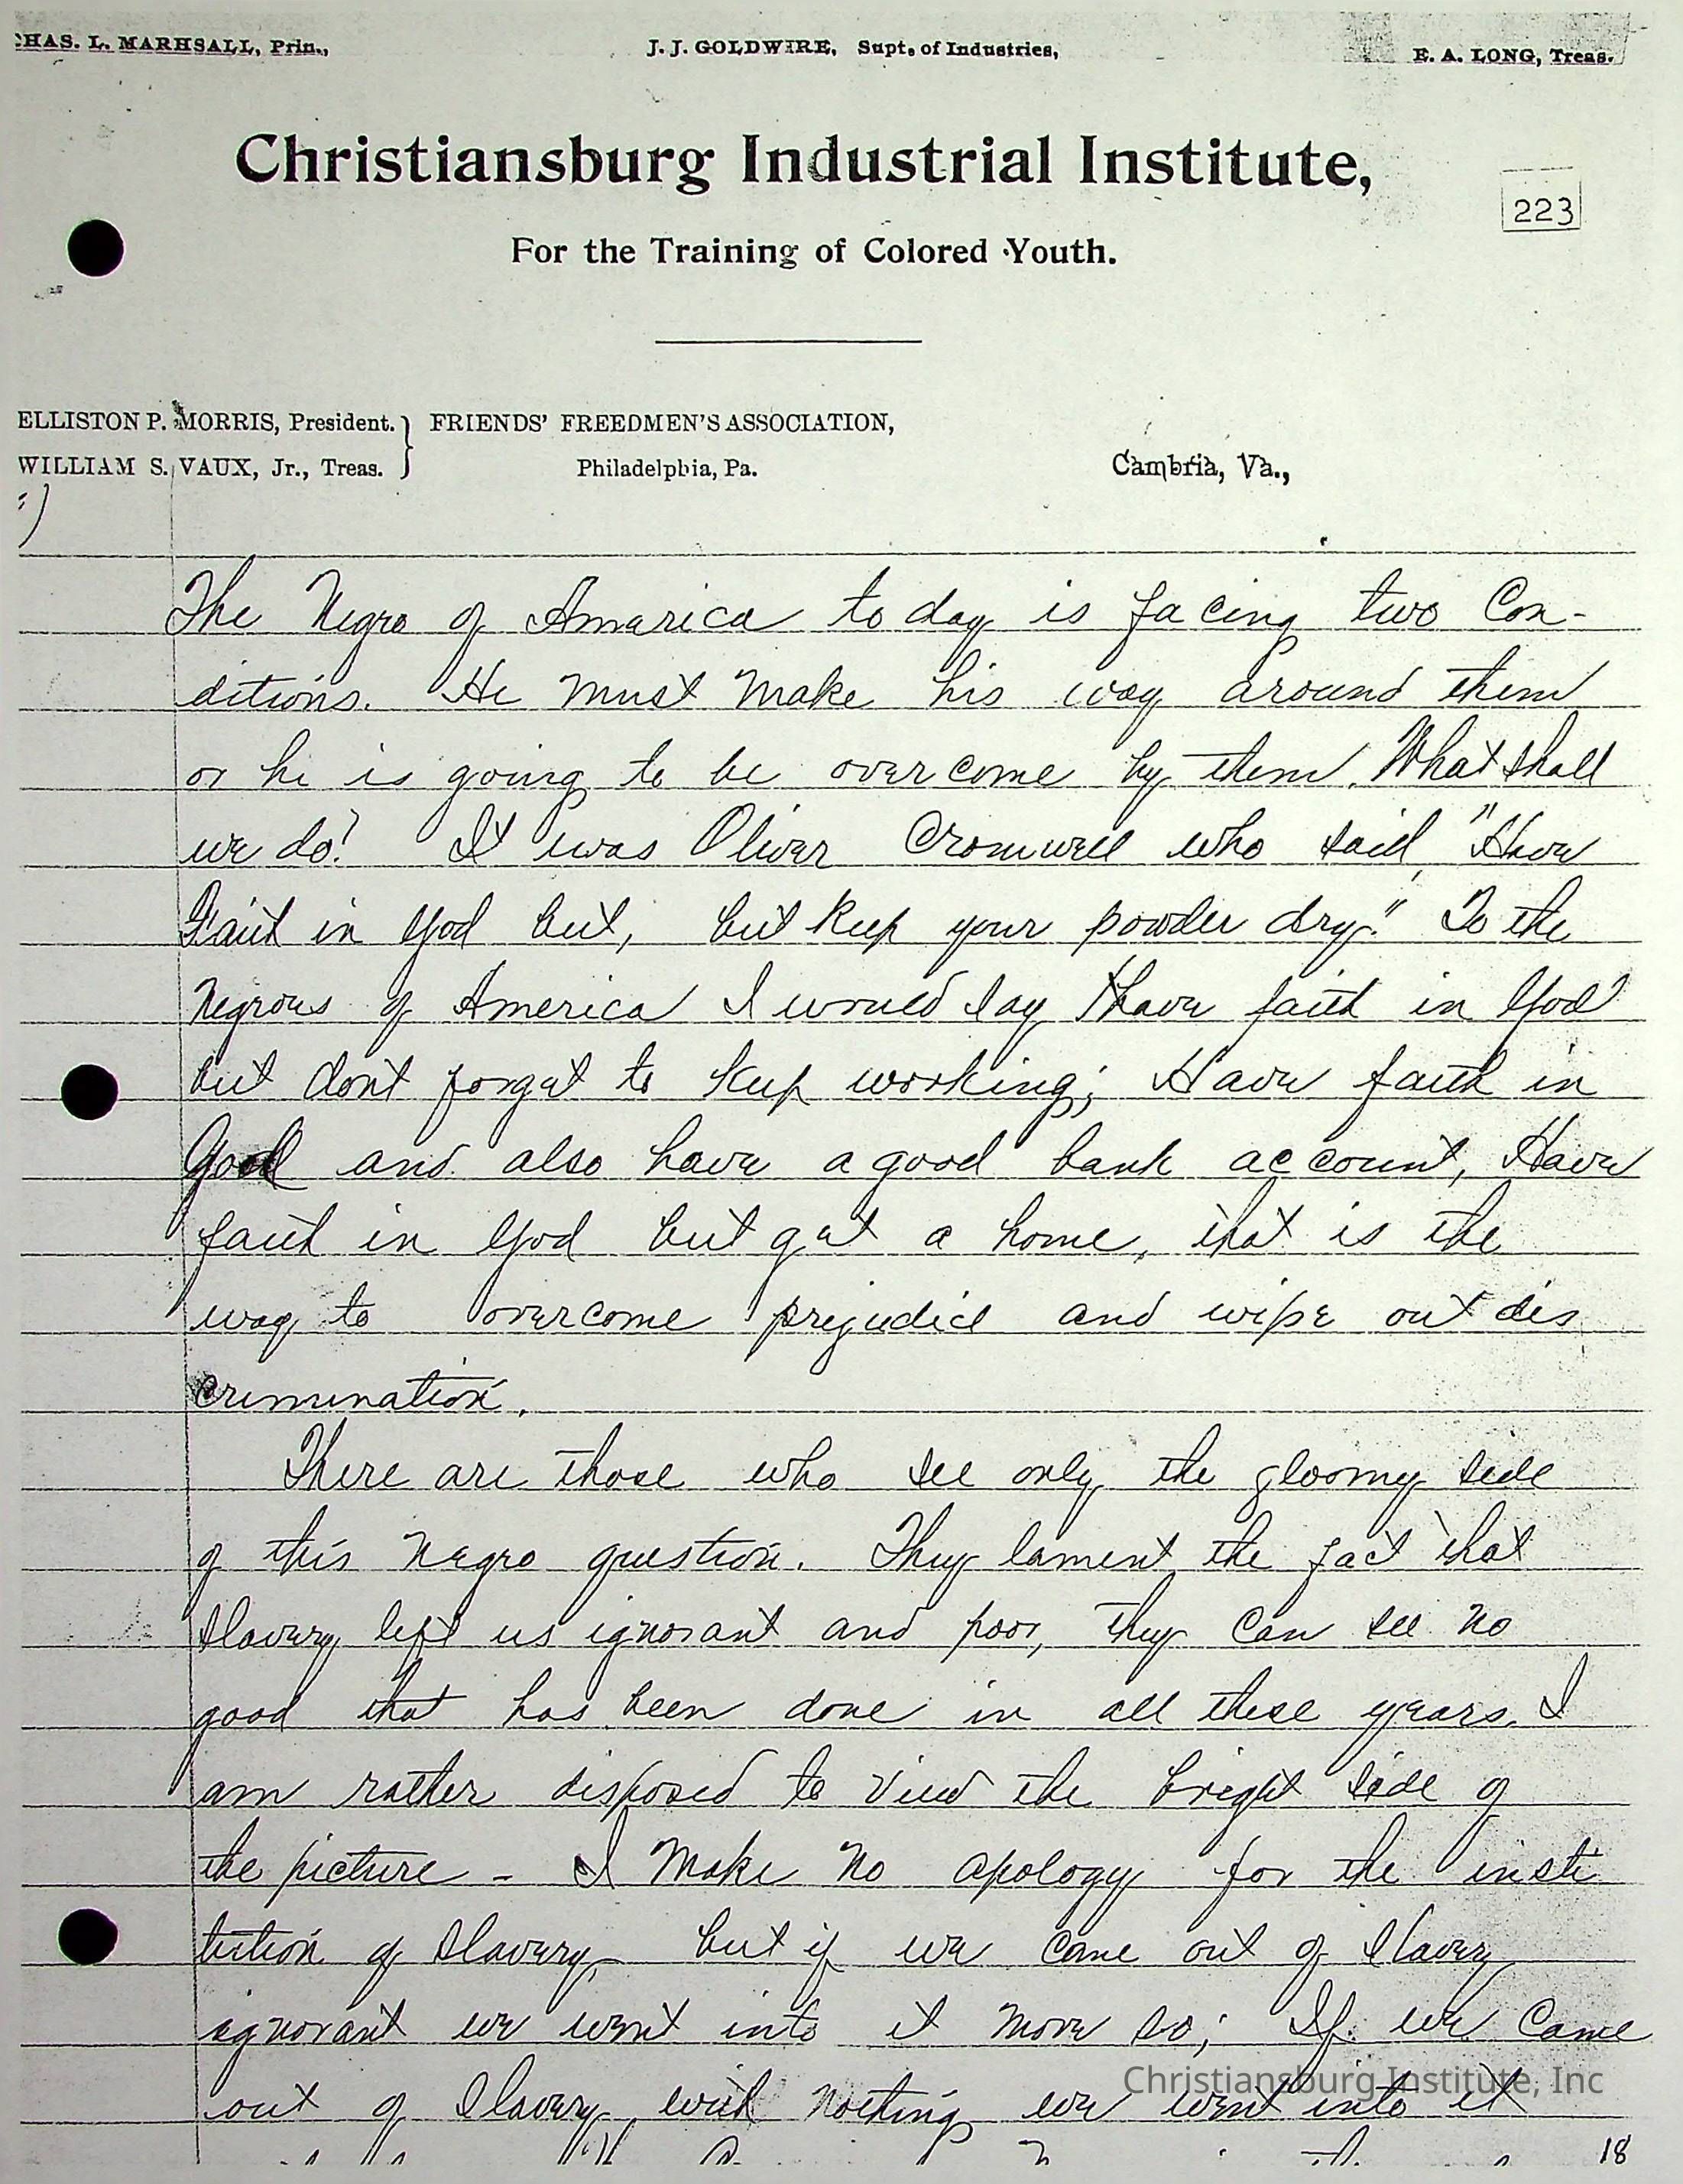 CHAS. L. MARHSALL, Prin., J. J. GOLDWIRE, Supt. of Industries, E. A. LONG, Treas.
Christiansburg Industrial Institute,
223
For the Training of Colored Youth.
ELLISTON P. MORRIS, President. } FRIENDS' FREEDMEN'S ASSOCIATION,
WILLIAM S. VAUX, Jr., Treas. Philadelphia, Pa. Cambria, Va.,
The Negro of Amarica to day is facing two Con-
ditions. He must make his way around them
or he is going to be over come by them. What shall
we do? It was Oliver Cromwell who said, "Have
Faith in God but, but keep your powder dry." To the
Negroes of America I would say have faith in God
but dont forget to keep working; Have faith in
God and also have a good bank account, Have
faith in God but get a home, that is the
way to overcome prejudice and wipe out dis
crimination.
There are those who see only the gloomy side
of this Negro question. They lament the fact that
Slavery left us ignorant and poor, they can see no
good that has been done in all these years. I
am rather disposed to view the bright side of
the picture - I make no apology for the insti
tution of Slavery, but if we came out of Slavery
ignorant we went into it more so; If we came
out of Slavery with nothing we went into it
Christiansburg Institute, Inc
18